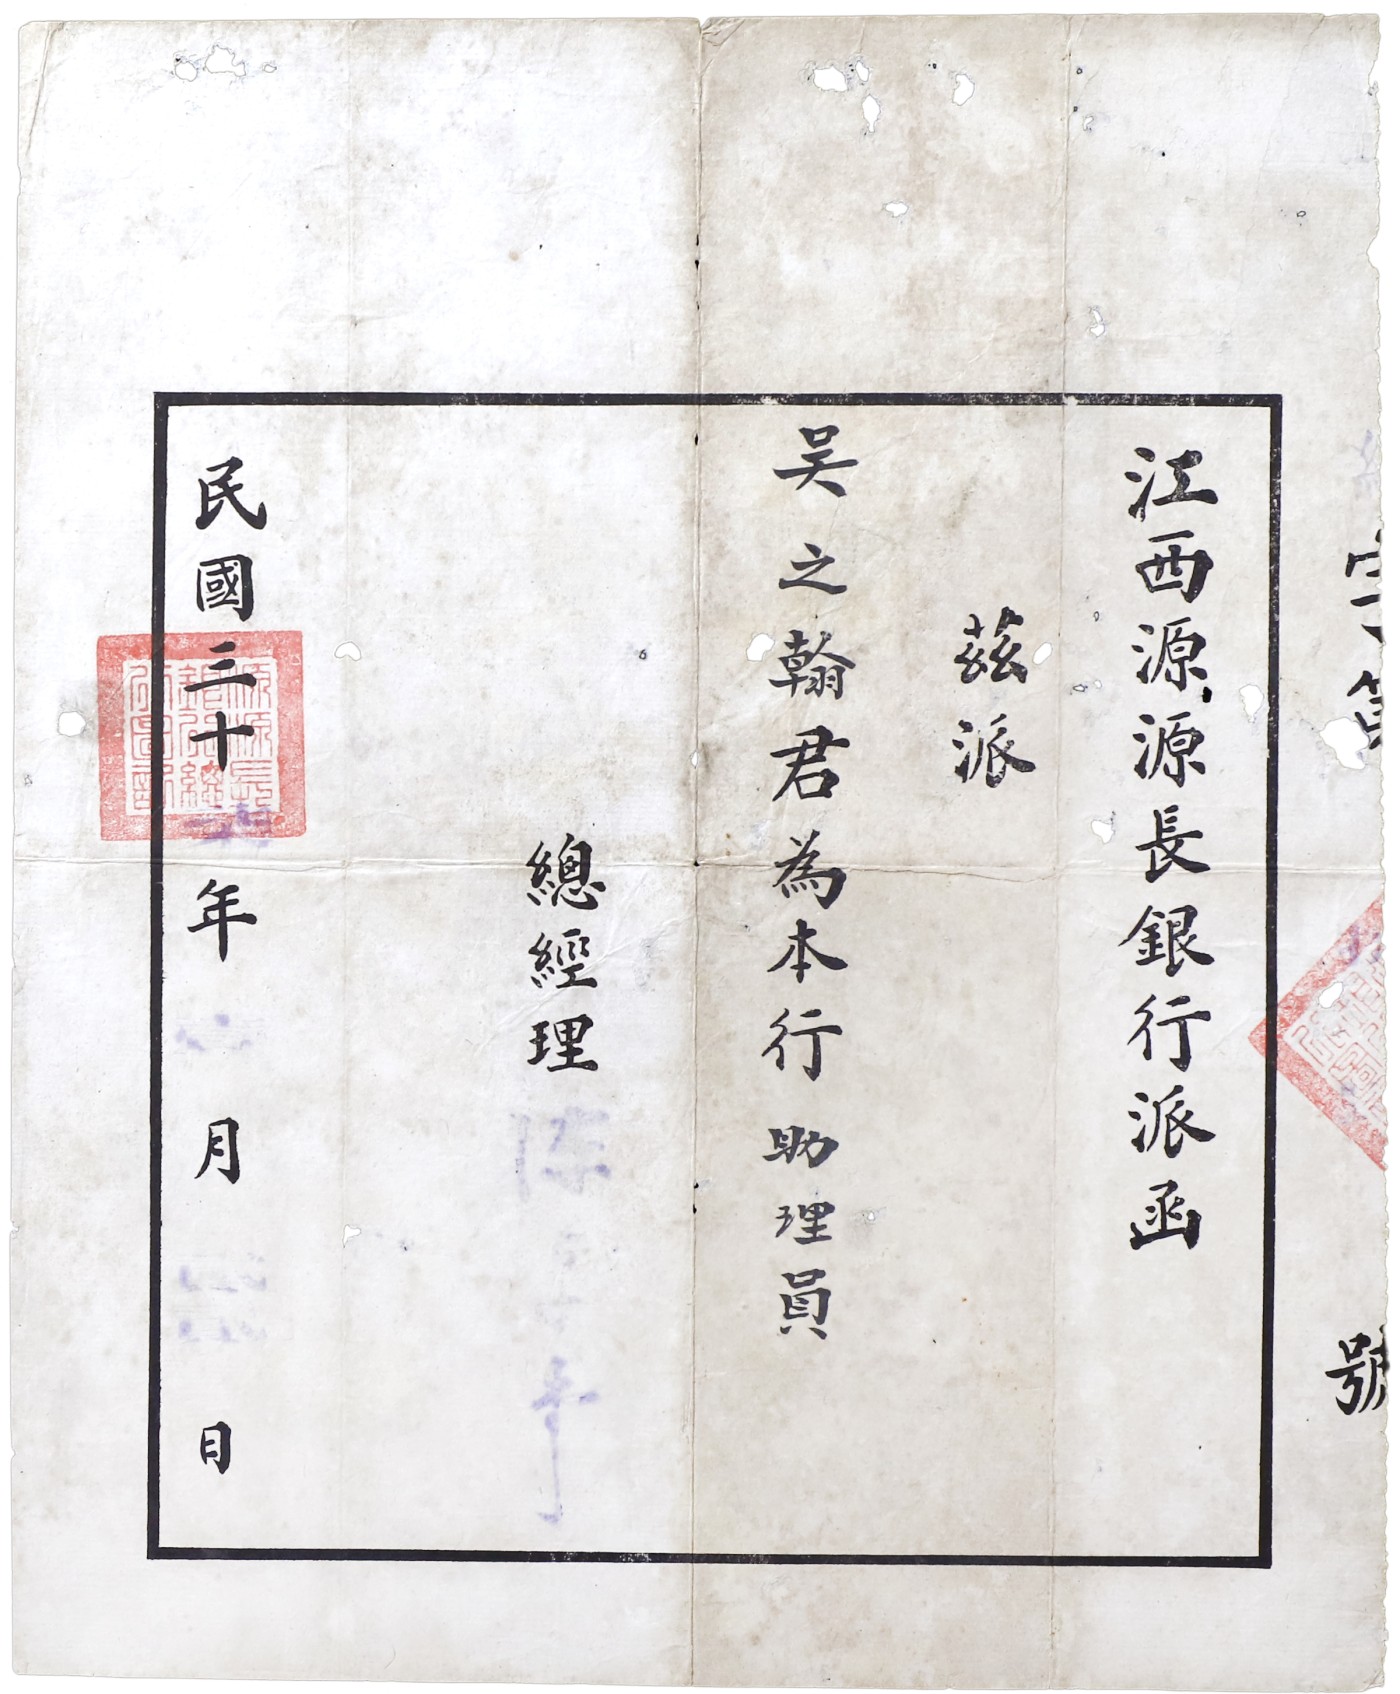 字第 號
江西源源長銀行派函
茲派
吴之翰君為本行助理員
總經理
民國三十 年 月 日